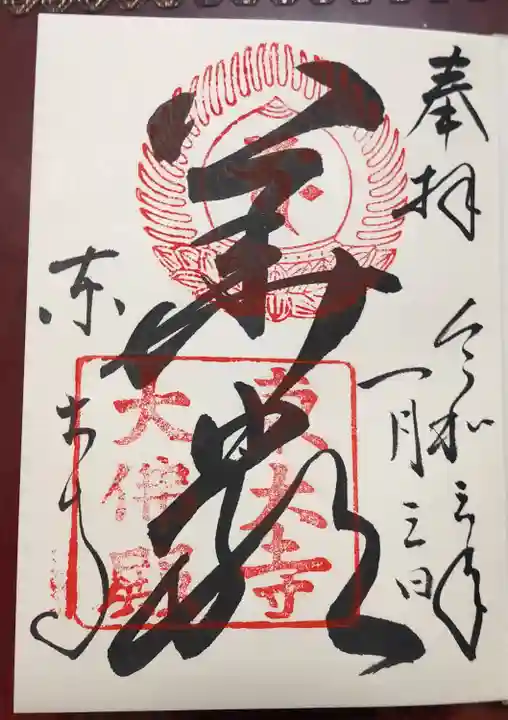 奉拝
令和三年
一月三日
華嚴
東大寺
東大寺
大佛殿